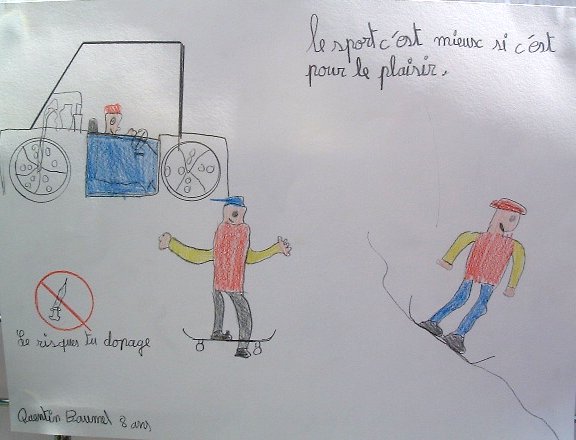 le sport c'est mieux si c'est
pour le plaisir.
Le risques tu dopage
Quentin Baumel 8 ans